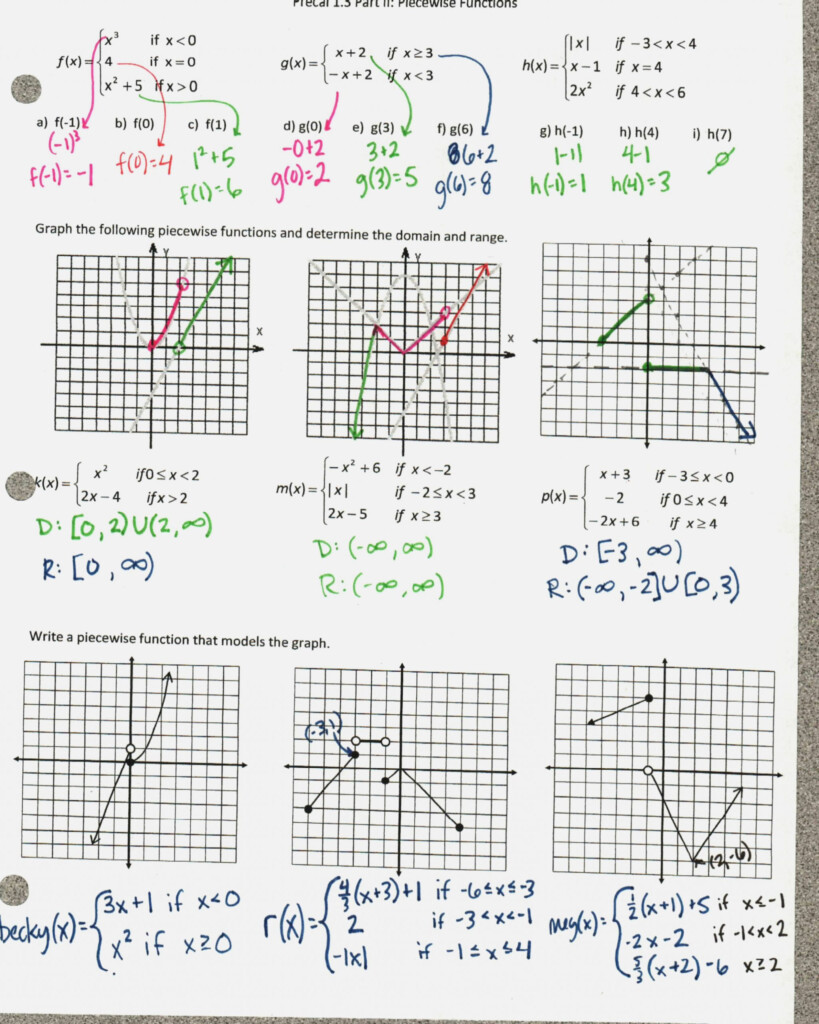 Precal 1.3 Part II: Piecewise Functions
f(x)= { x³ if x<0
4 if x=0
x²+5 if x>0
g(x)= { x+2 if x≥3
−x+2 if x<3
h(x)= { |x| if −3<x<4
x−1 if x=4
2x² if 4<x<6
a) f(-1) b) f(0) c) f(1) d) g(0) e) g(3) f) g(6) g) h(-1) h) h(4) i) h(7)
(-1)³ 1²+5 -0+2 3+2 6+2 |-1| 4-1 ∅
f(-1)=-1 f(0)=4 f(1)=6 g(0)=2 g(3)=5 g(6)=8 h(-1)=1 h(4)=3
Graph the following piecewise functions and determine the domain and range.
Y
X
Y
X
k(x)= { x² if0≤x<2
2x−4 ifx>2
D: [0,2)U(2,∞)
R: [0,∞)
m(x)= { −x²+6 if x<−2
|x| if −2≤x<3
2x−5 if x≥3
D: (-∞,∞)
R: (-∞,∞)
p(x)= { x+3 if−3≤x<0
−2 if0≤x<4
−2x+6 if x≥4
D: [-3,∞)
R: (-∞,-2]U[0,3)
Write a piecewise function that models the graph.
(-3,1)
(2,-6)
becky(x)= { 3x+1 if x<0
x² if x≥0
r(x)= { 4/3(x+3)+1 if -6≤x≤-3
2 if -3<x<-1
-|x| if -1≤x≤4
meg(x)= { 1/2(x+1)+5 if x≤-1
-2x-2 if -1<x<2
5/3(x+2)-6 x≥2